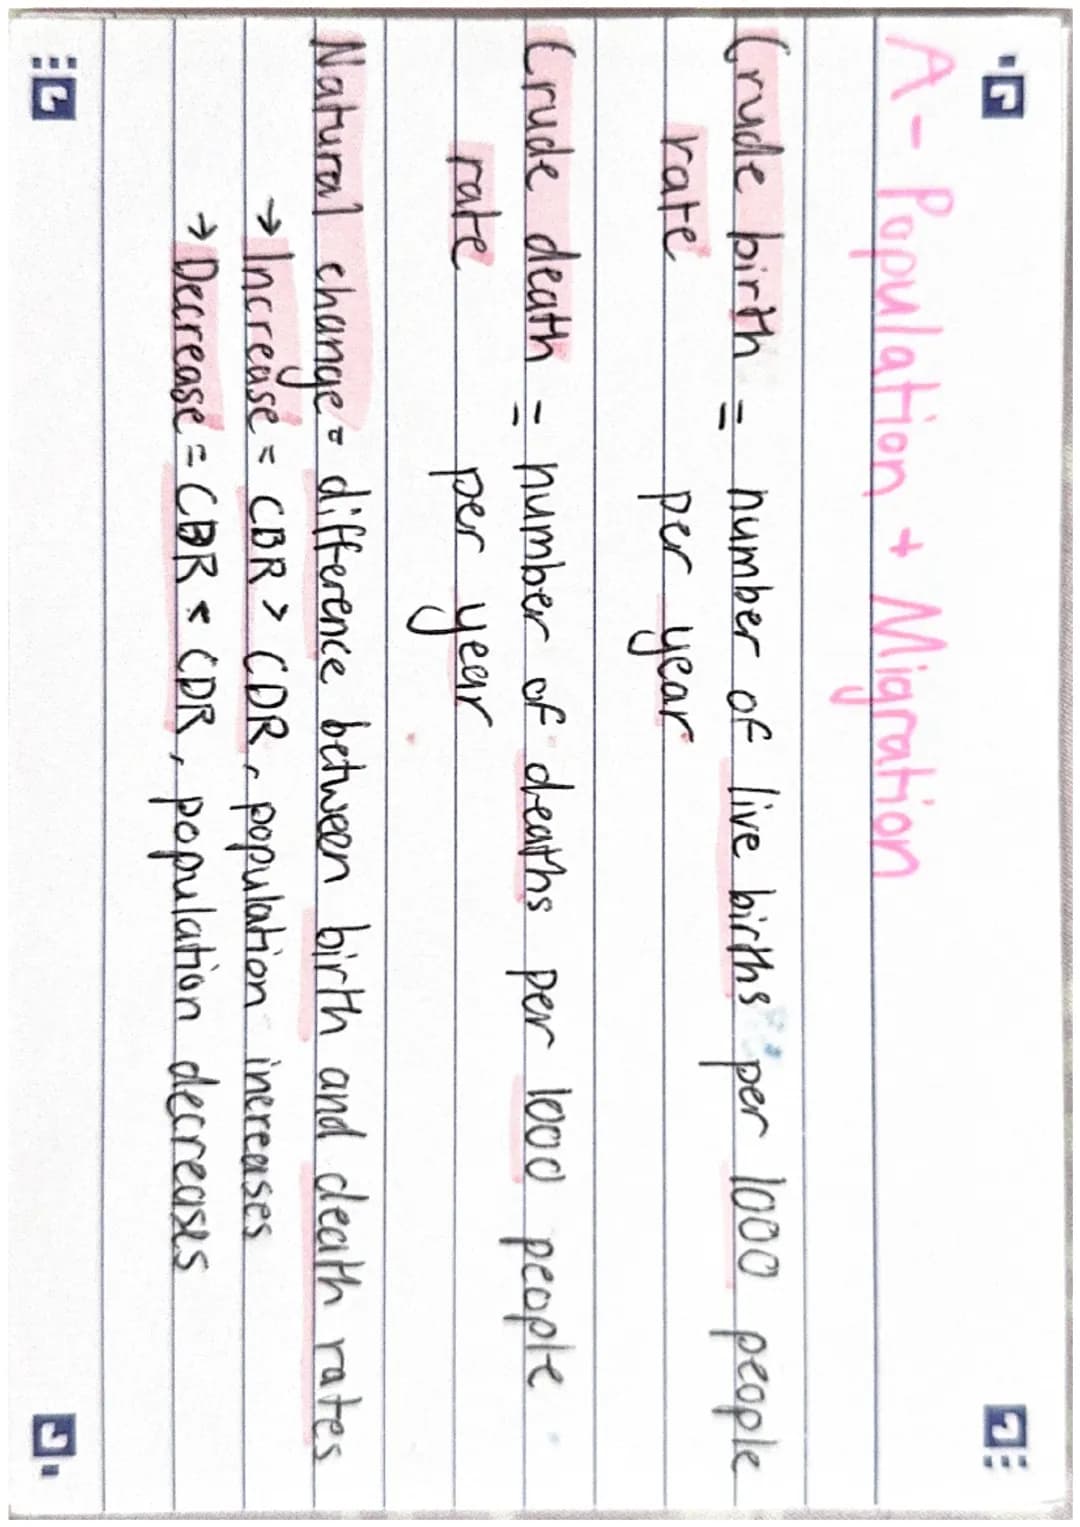 A - Population + Migration
Crude birth = number of live births per 1000 people
rate per year
Crude death = number of deaths per 1000 people
rate per year
Natural change = difference between birth and death rates
→ Increase = CBR > CDR, population increases
→ Decrease = CBR < CDR, population decreases